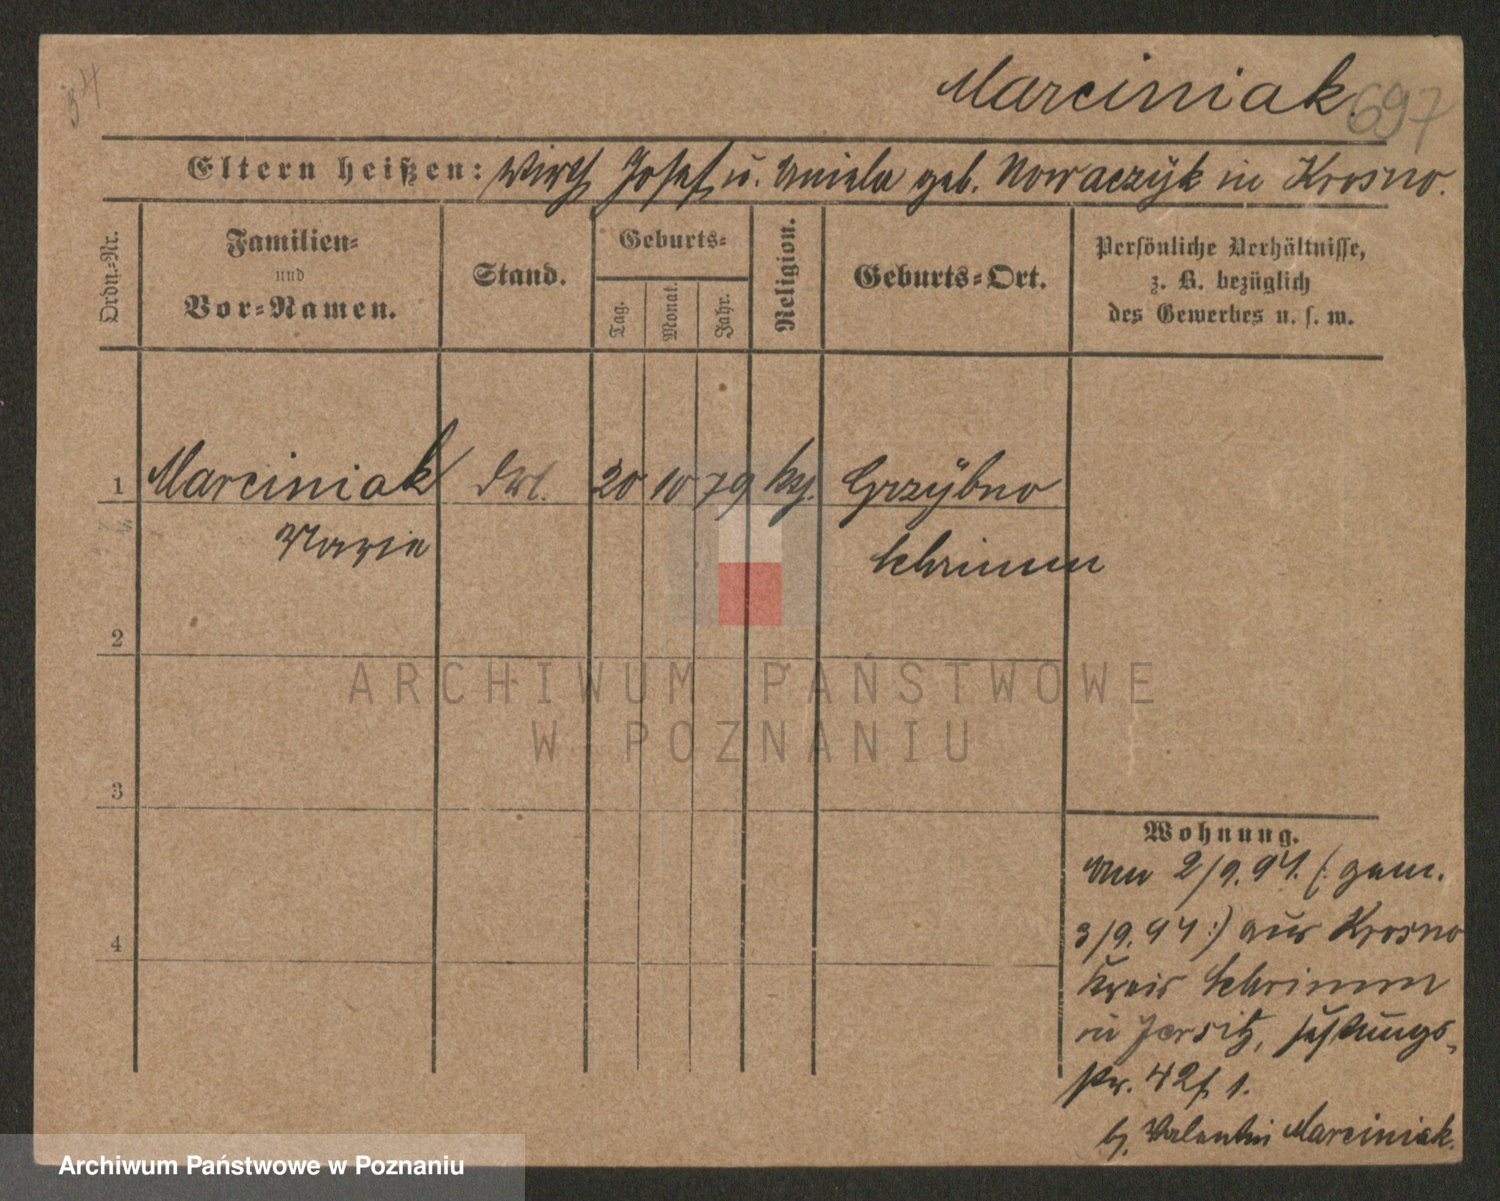 34
Marciniak. 697
Eltern heißen: Wirth Josef u. Aniela geb. Nowaczÿk in Krosno.
Ordn.-Nr.
Familien-
und
Vor-Namen.
Stand.
Geburts-
Tag.
Monat.
Jahr.
Religion.
Geburts-Ort.
Persönliche Verhältnisse,
z. B. bezüglich
des Gewerbes u. s. w.
1 Marciniak 20 10 79 Grzÿbno
Marie Schrimm
2
3
4
ARCHIWUM PAŃSTWOWE
W POZNANIU
Wohnung.
2/9.94. (: gem.
3/9.94 :) aus Krosno
Kreis Schrimm
in Jersitz, Festungs-
str. 42 1.
b. Valentin Marciniak.
Archiwum Państwowe w Poznaniu